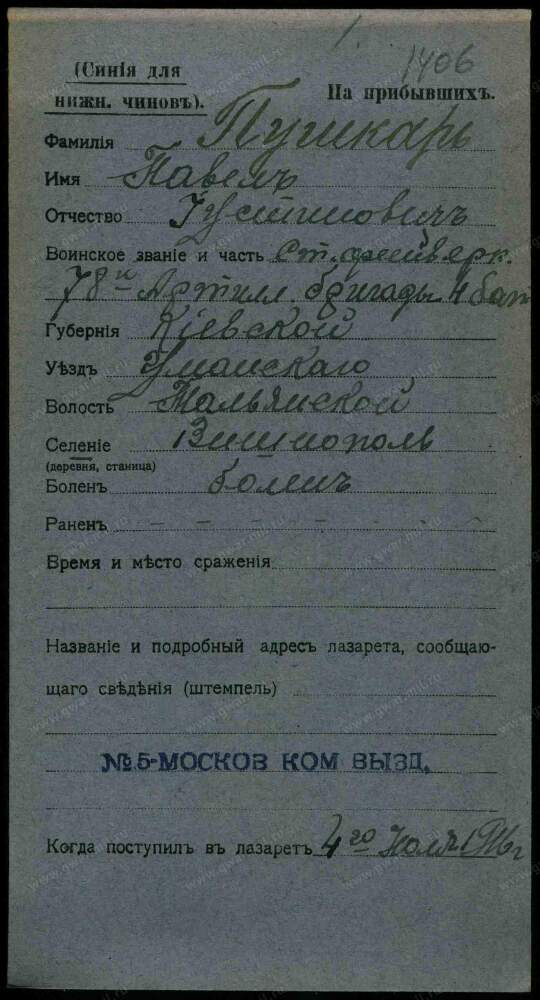 1406
(Синія для
нижн. чиновъ).
На прибывшихъ.
Фамилія Пушкарь
Имя Павелъ
Отчество Іустиновичъ
Воинское званіе и часть Ст. фейверк.
78й Артилл. бригады 4 бат
Губернія Кіевской
Уѣздъ Уманскаго
Волость Тальянской
Селеніе Вишнополь
(деревня, станица)
Боленъ боленъ
Раненъ – – – – – – – –
Время и мѣсто сраженія
Названіе и подробный адресъ лазарета, сообщаю-
щаго свѣдѣнія (штемпель)
№5-МОСКОВ КОМ ВЫЗД.
Когда поступилъ въ лазаретъ 4го 1916г